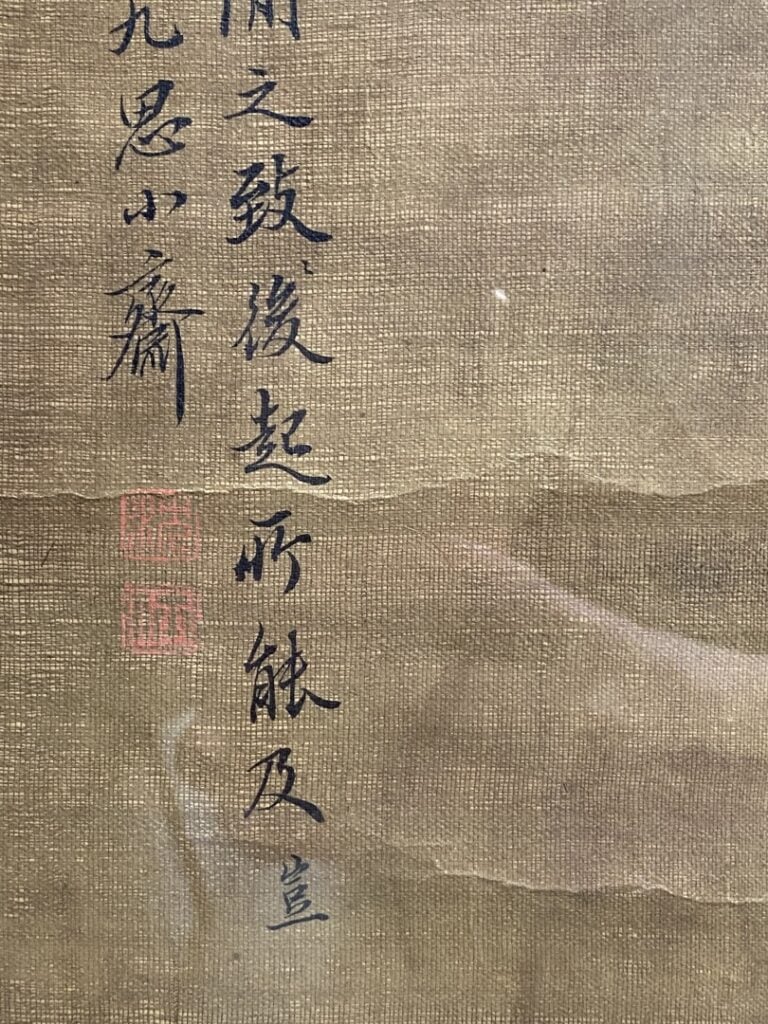 之致後起所能及豈
九思小齋